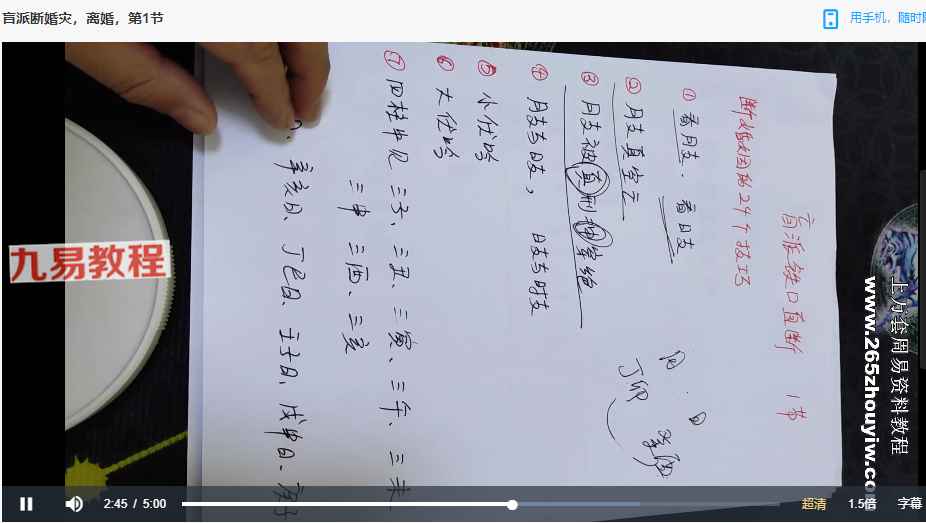 盲派断婚灾，离婚，第1节
用手机，随时随
盲派铁口直断 1节
断婚姻的24个技巧
① 看月支. 看日支
② 月支真空亡
③ 月支被真刑冲穿绝
④ 月支与日支， 日支与时支
⑤ 小伏吟
⑥ 大伏吟
⑦ 四柱中见 三子、三丑、三寅、三午、三未
三申 三酉、三亥
辛亥日、丁巳日、壬子日、戊申日、
月 日
丁卯
九易教程
上万套周易资料教程
www.265zhouyiw.co
2:45 / 5:00
超清
1.5倍
字幕